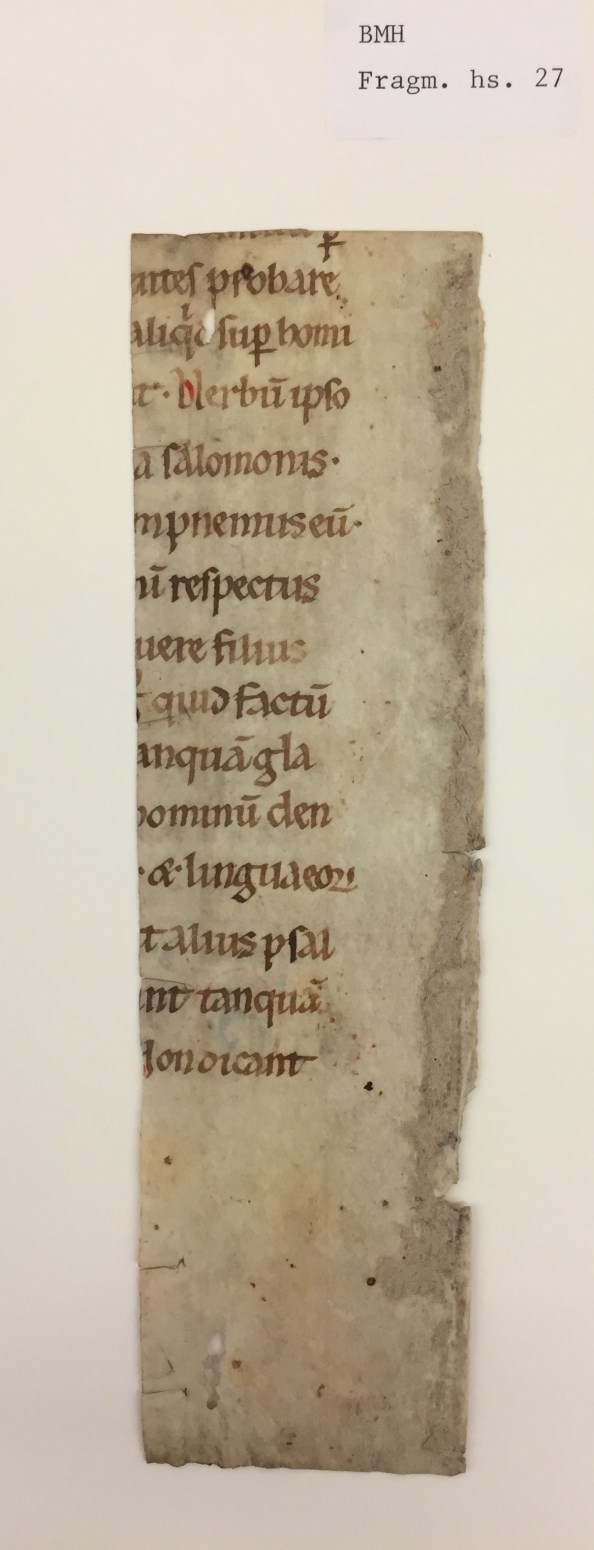 BMH
Fragm. hs. 27
ntes p̲robare
aliq̇d suꝑ homi
t· Verbū ipso
a salomonis·
mpnemus eū·
ū respectus
uere filius
quid factū
anquā gla
hominū den
· & · lingua eoꝝ
t alius psal
nt tanquā
Non dicant